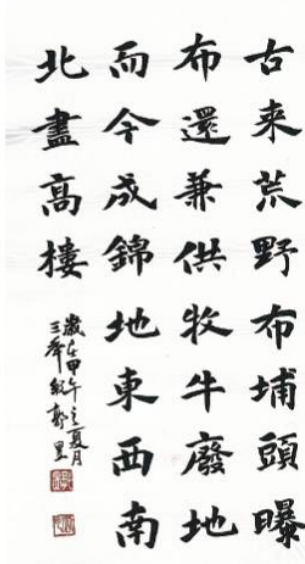 古来荒野布埔頭曝
布還兼供牧牛廢地
而今成錦地東西南
北盡高樓
歲在甲午之夏月
三峯